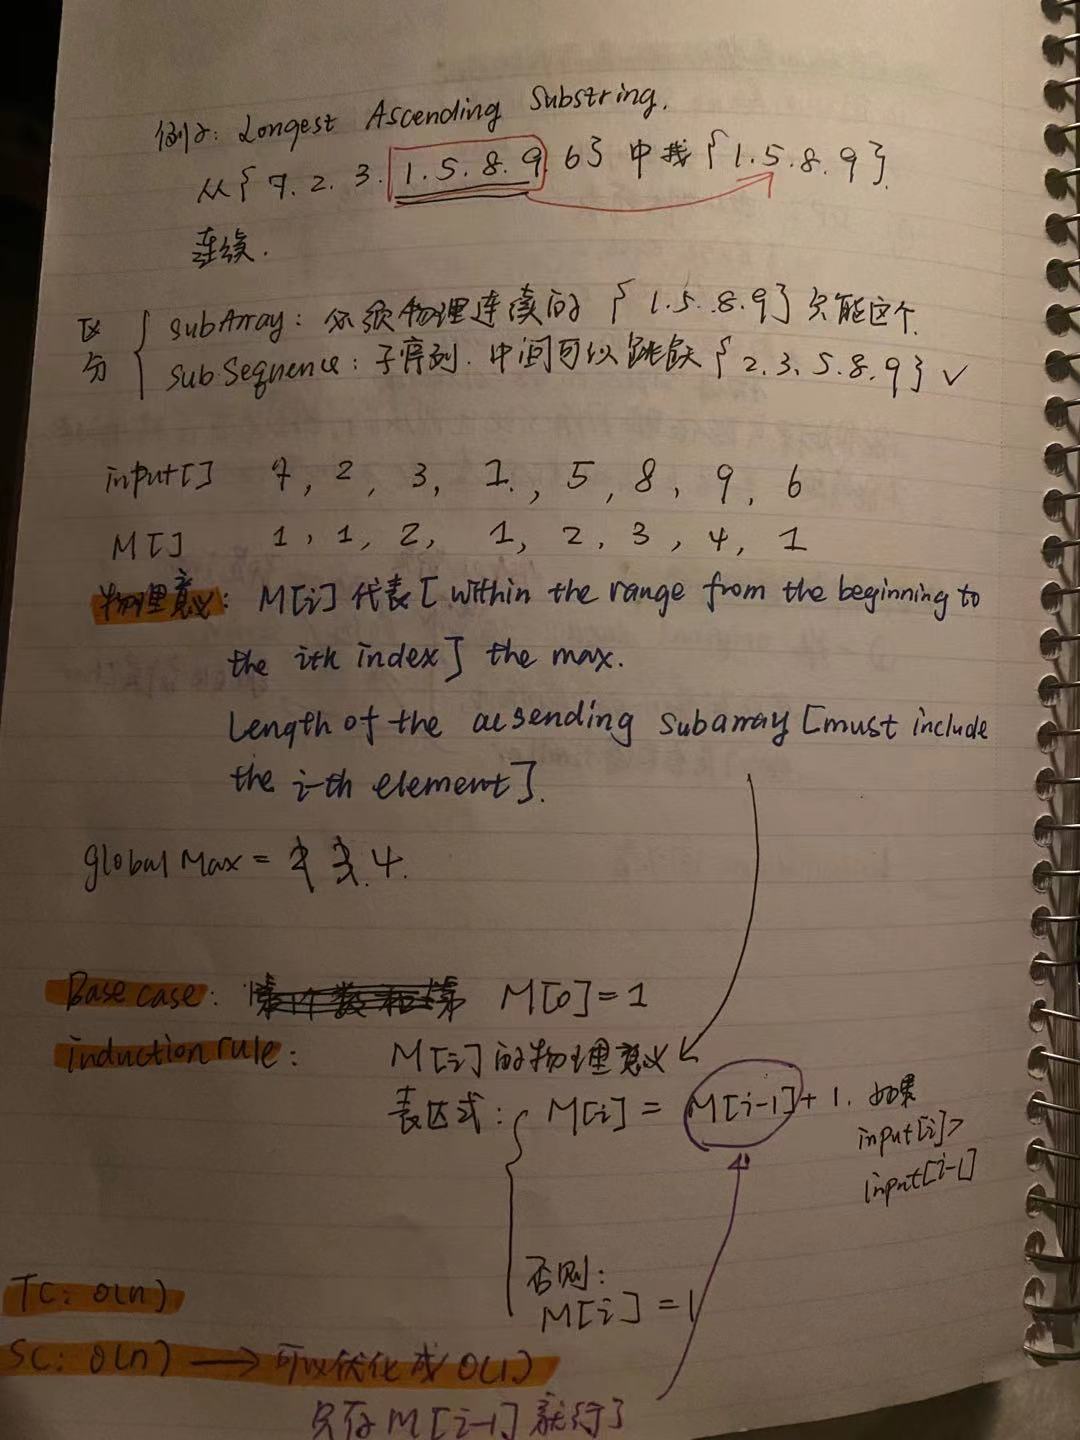 例子: Longest Ascending Substring.
从{7. 2. 3. 1. 5. 8. 9. 6} 中找 {1. 5. 8. 9}.
连续.
区分
subArray: 必须物理连续的 {1. 5. 8. 9} 只能这个.
subSequence: 子序列. 中间可以跳跃 {2. 3. 5. 8. 9} ✓
input[] 7, 2, 3, 1, 5, 8, 9, 6
M[] 1, 1, 2, 1, 2, 3, 4, 1
物理意义: M[i] 代表 [within the range from the beginning to
the ith index] the max.
Length of the acsending subarray [must include
the i-th element].
global Max = 2 3. 4.
Base case: M[0] = 1
induction rule: M[i] 的物理意义
表达式: M[i] = M[i-1] + 1. 如果
input[i] >
input[i-1]
否则:
M[i] = 1
TC: O(n)
SC: O(n) → 可以优化成 O(1)
只存 M[i-1] 就行了